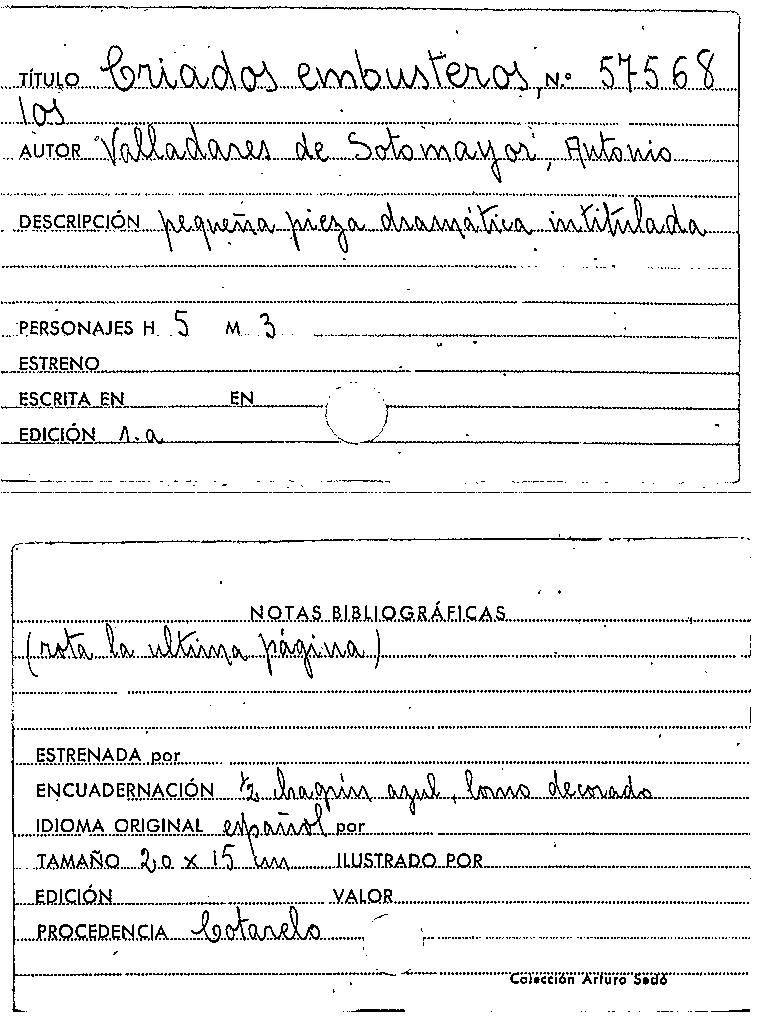 TÍTULO Criados embusteros, N.º 57568
los
AUTOR Valladares de Sotomayor, Antonio
DESCRIPCIÓN pequeña pieza dramática intitulada
PERSONAJES H. 5 M. 3
ESTRENO
ESCRITA EN EN
EDICIÓN 1.a
NOTAS BIBLIOGRÁFICAS
(rota la ultima página)
ESTRENADA por
ENCUADERNACIÓN ½ chagrín azul, lomo decorado
IDIOMA ORIGINAL español por
TAMAÑO 20 x 15 cm ILUSTRADO POR
EDICIÓN VALOR
PROCEDENCIA Cotarelo
Colección Arturo Sedó